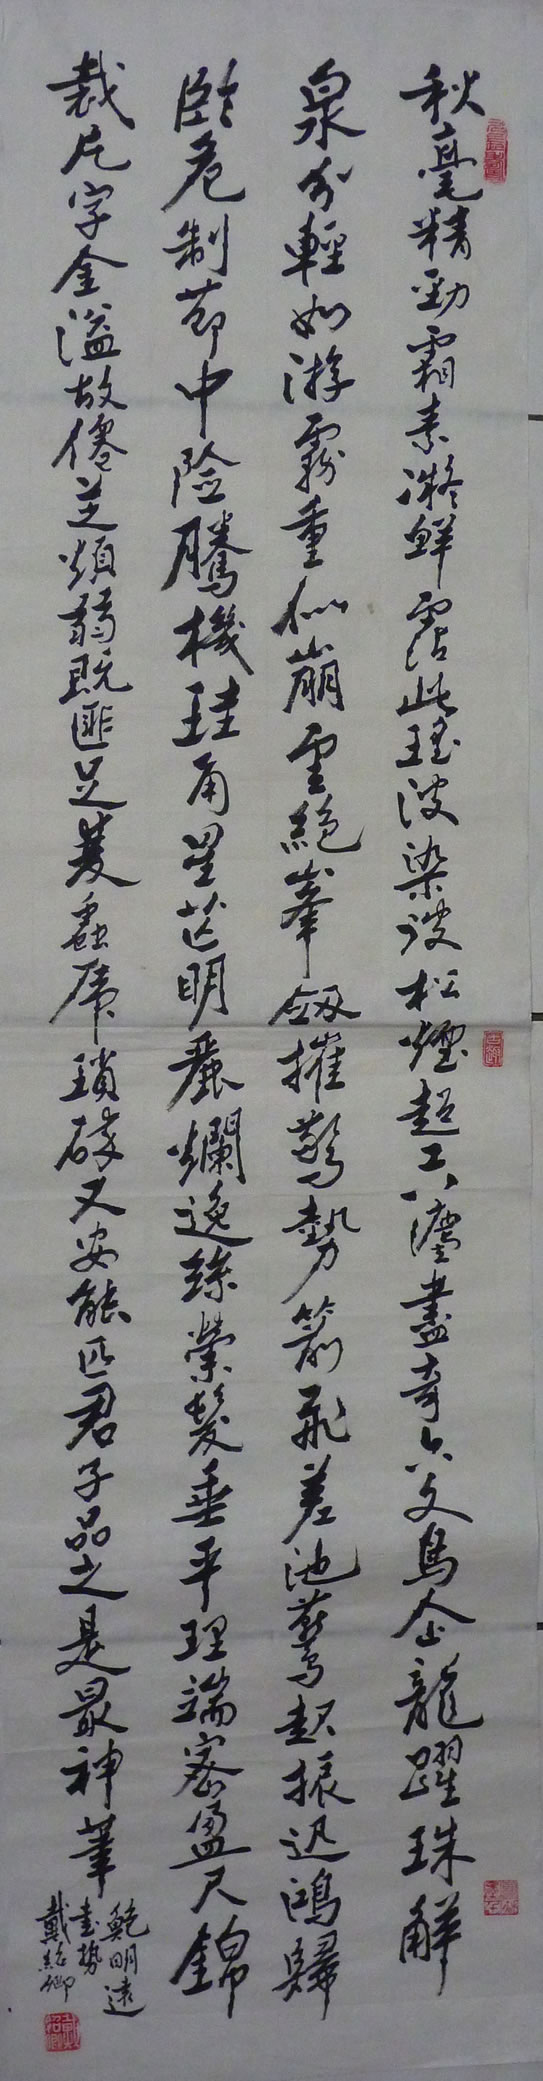 秋毫精勁霜素凝鮮霑此瑤波染彼松煙超工八灋盡奇六文鳥企龍躍珠解
泉分輕如游霧重似崩雲絕峯劔摧驚勢箭飛差池鷰起振迅鴻歸
臨危制節中險騰機珪角星芒明麗爛逸絲縈髮垂平理端密盈尺錦
裁片字金溢故僊芝煩弱既匪足雙蟲虎瑣碎又安能匹君子品之是最神筆
鮑明遠
書勢
戴紹卿